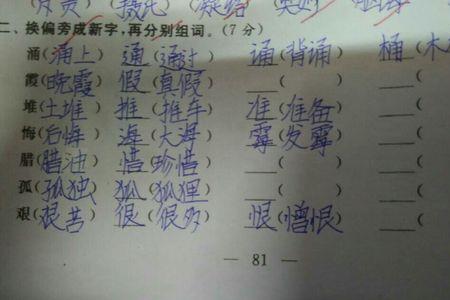 二、换偏旁成新字,再分别组词。(7分)
涌(涌上) 通(通过) 诵(背诵) 桶(木
霞(晚霞) 假(真假) ( ) (
堆(土堆) 推(推车) 准(准备) (
悔(后悔) 海(大海) 霉(发霉) (
腊(腊油) 惜(珍惜) ( ) (
孤(孤独) 狐(狐狸) ( ) (
艰(艰苦) 很(很多) 恨(憎恨) (
— 81 —